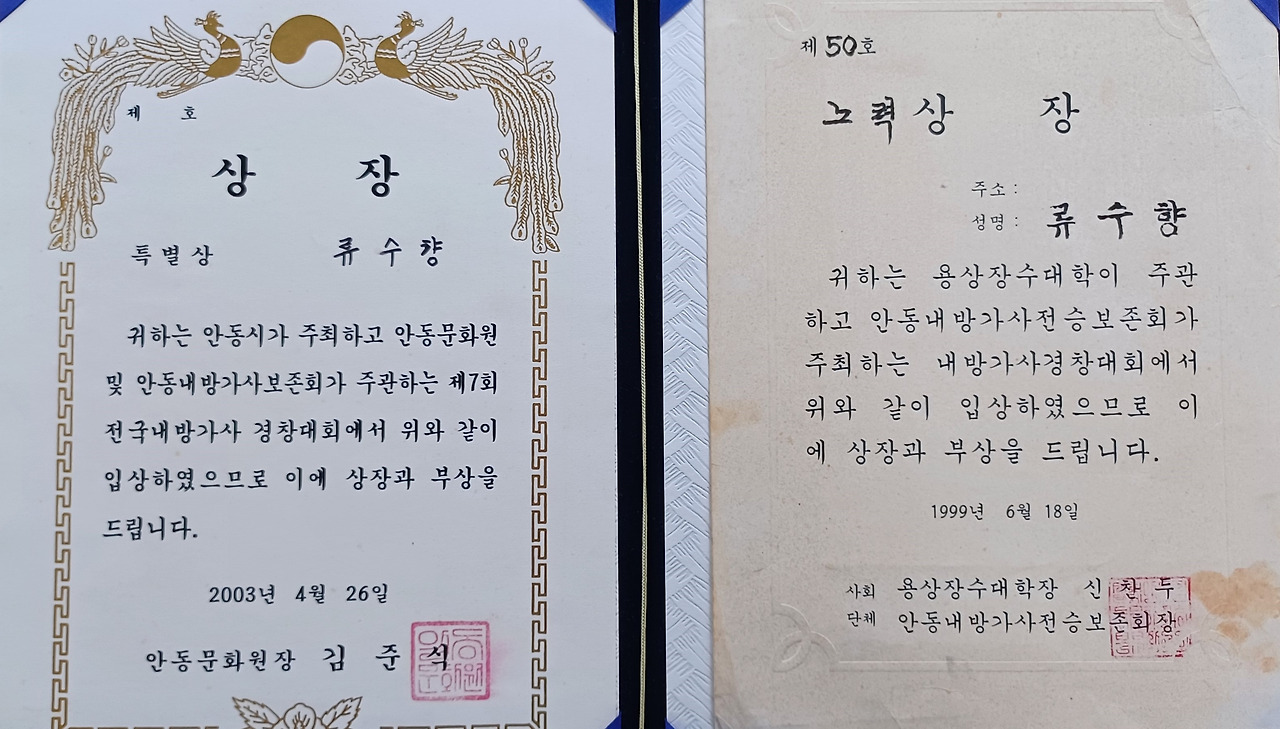 제 호
상 장
특별상 류수향
귀하는 안동시가 주최하고 안동문화원
및 안동내방가사보존회가 주관하는 제7회
전국내방가사 경창대회에서 위와 같이
입상하였으므로 이에 상장과 부상을
드립니다.
2003년 4월 26일
안동문화원장 김 준 식
제 50호
노력상 장
주소 :
성명 : 류 수 향
귀하는 용상장수대학이 주관
하고 안동내방가사전승보존회가
주최하는 내방가사경창대회에서
위와 같이 입상하였으므로 이
에 상장과 부상을 드립니다.
1999년 6월 18일
사회 용상장수대학장 신 찬 두
단체 안동내방가사전승보존회장